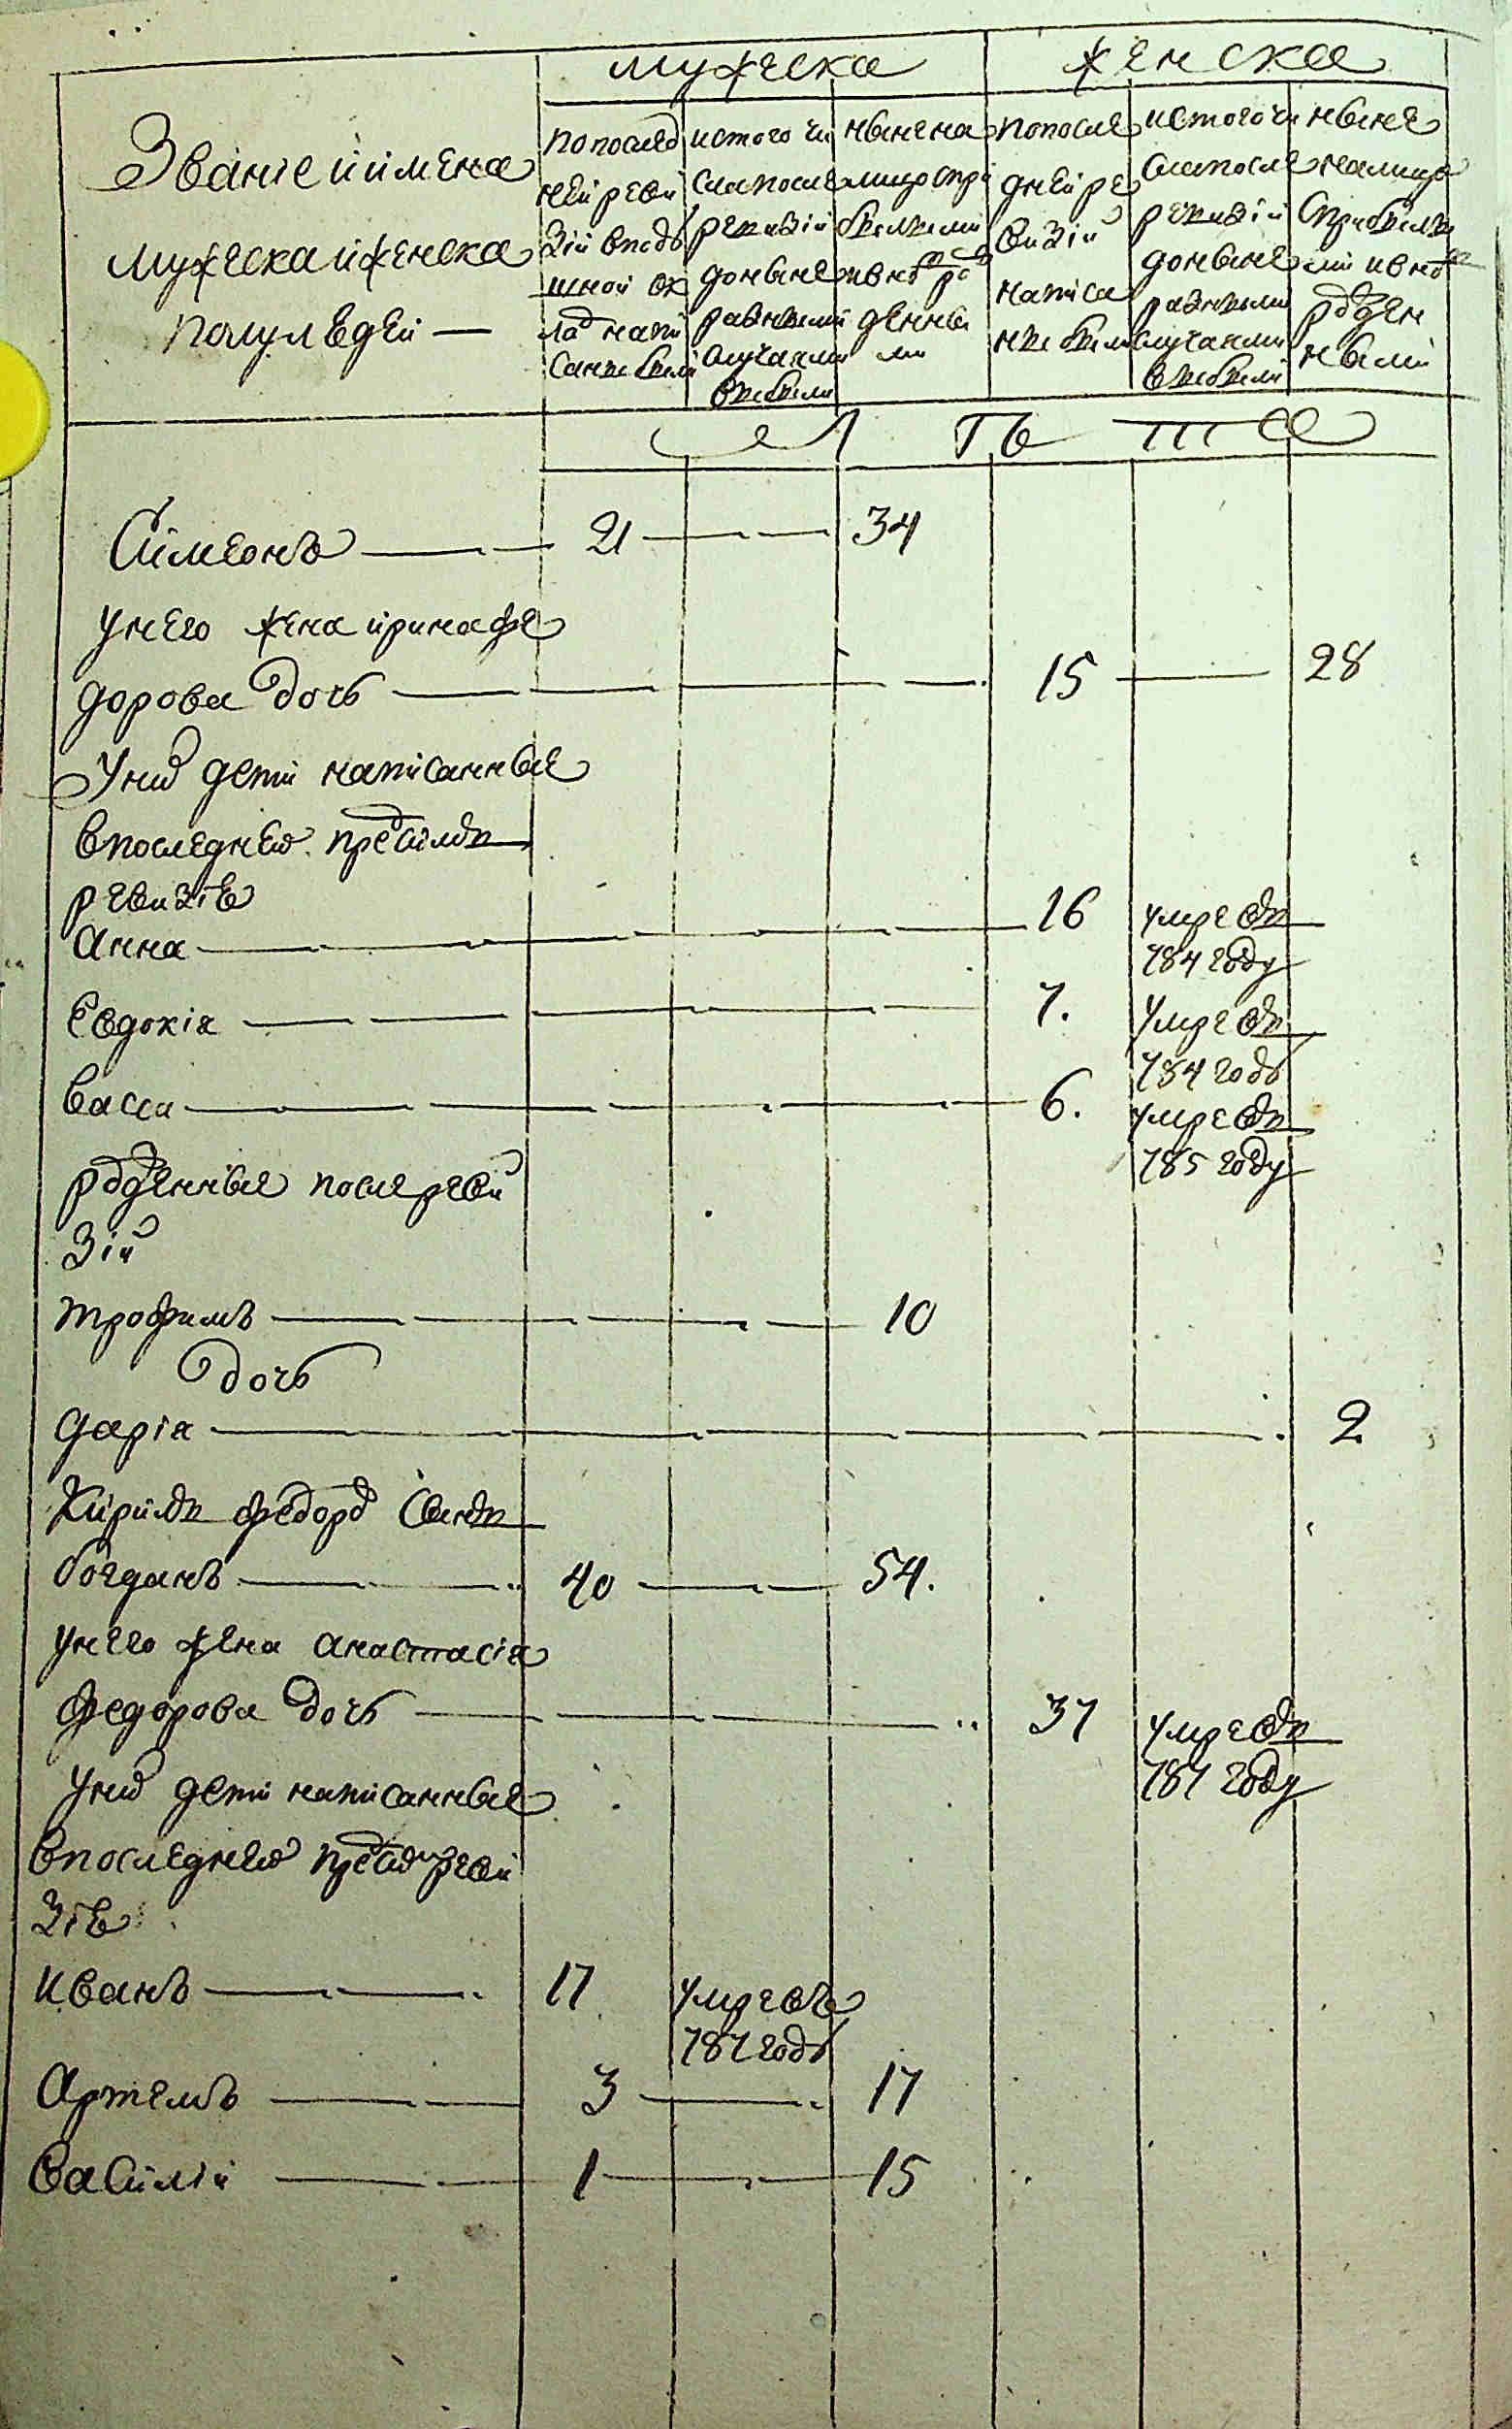 мужеска женска
Званïе и имена
мужеска и женска
полу людей —
по послед
ней реви
зïи в под
шной ок
лад напи
саны были
ис того чи
сла после
ревизïи
до ныне
разными
случаями
выбыли
ныне на
лицо с при
былыми
и вно ро
жденны
ми
по после
дней ре
визïи
написа
ны были
ис того чи
сла после
ревизïи
до ныне
разными
случаями
выбыли
ныне
на лицо
с прибылы
ми и вно
рожден
ными
лѣта
Симеонъ 21 34
у него жена ирина фе
дорова дочь 15 28
у них дети написанные
в последней пред сим
ревизïѣ
анна 16 умре в
784 году
Евдокïя 7. умре в
784 году
васса 6. умре в
785 году
рожденные после реви
зïи
трофимъ 10
дочь
дарïя 2
Кирил федоров сын
богданъ 40 54.
у него жена анастасïя
федорова дочь 37 умре в
787 году
у них дети написанные
в последней пред сим реви
зïѣ
иванъ 17 умре въ
787 году
артемъ 3 17
василïй 1 15